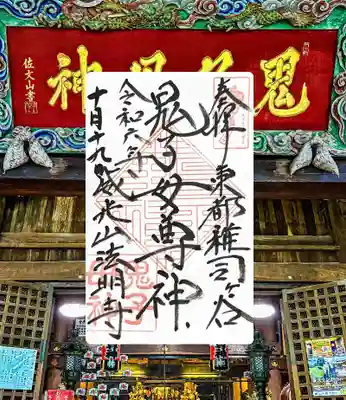 鬼子母神
佐文山書
奉拝 東都雑司ヶ谷
鬼子母尊神
令和六年
十月十九日 威光山法明寺
鬼子
母神